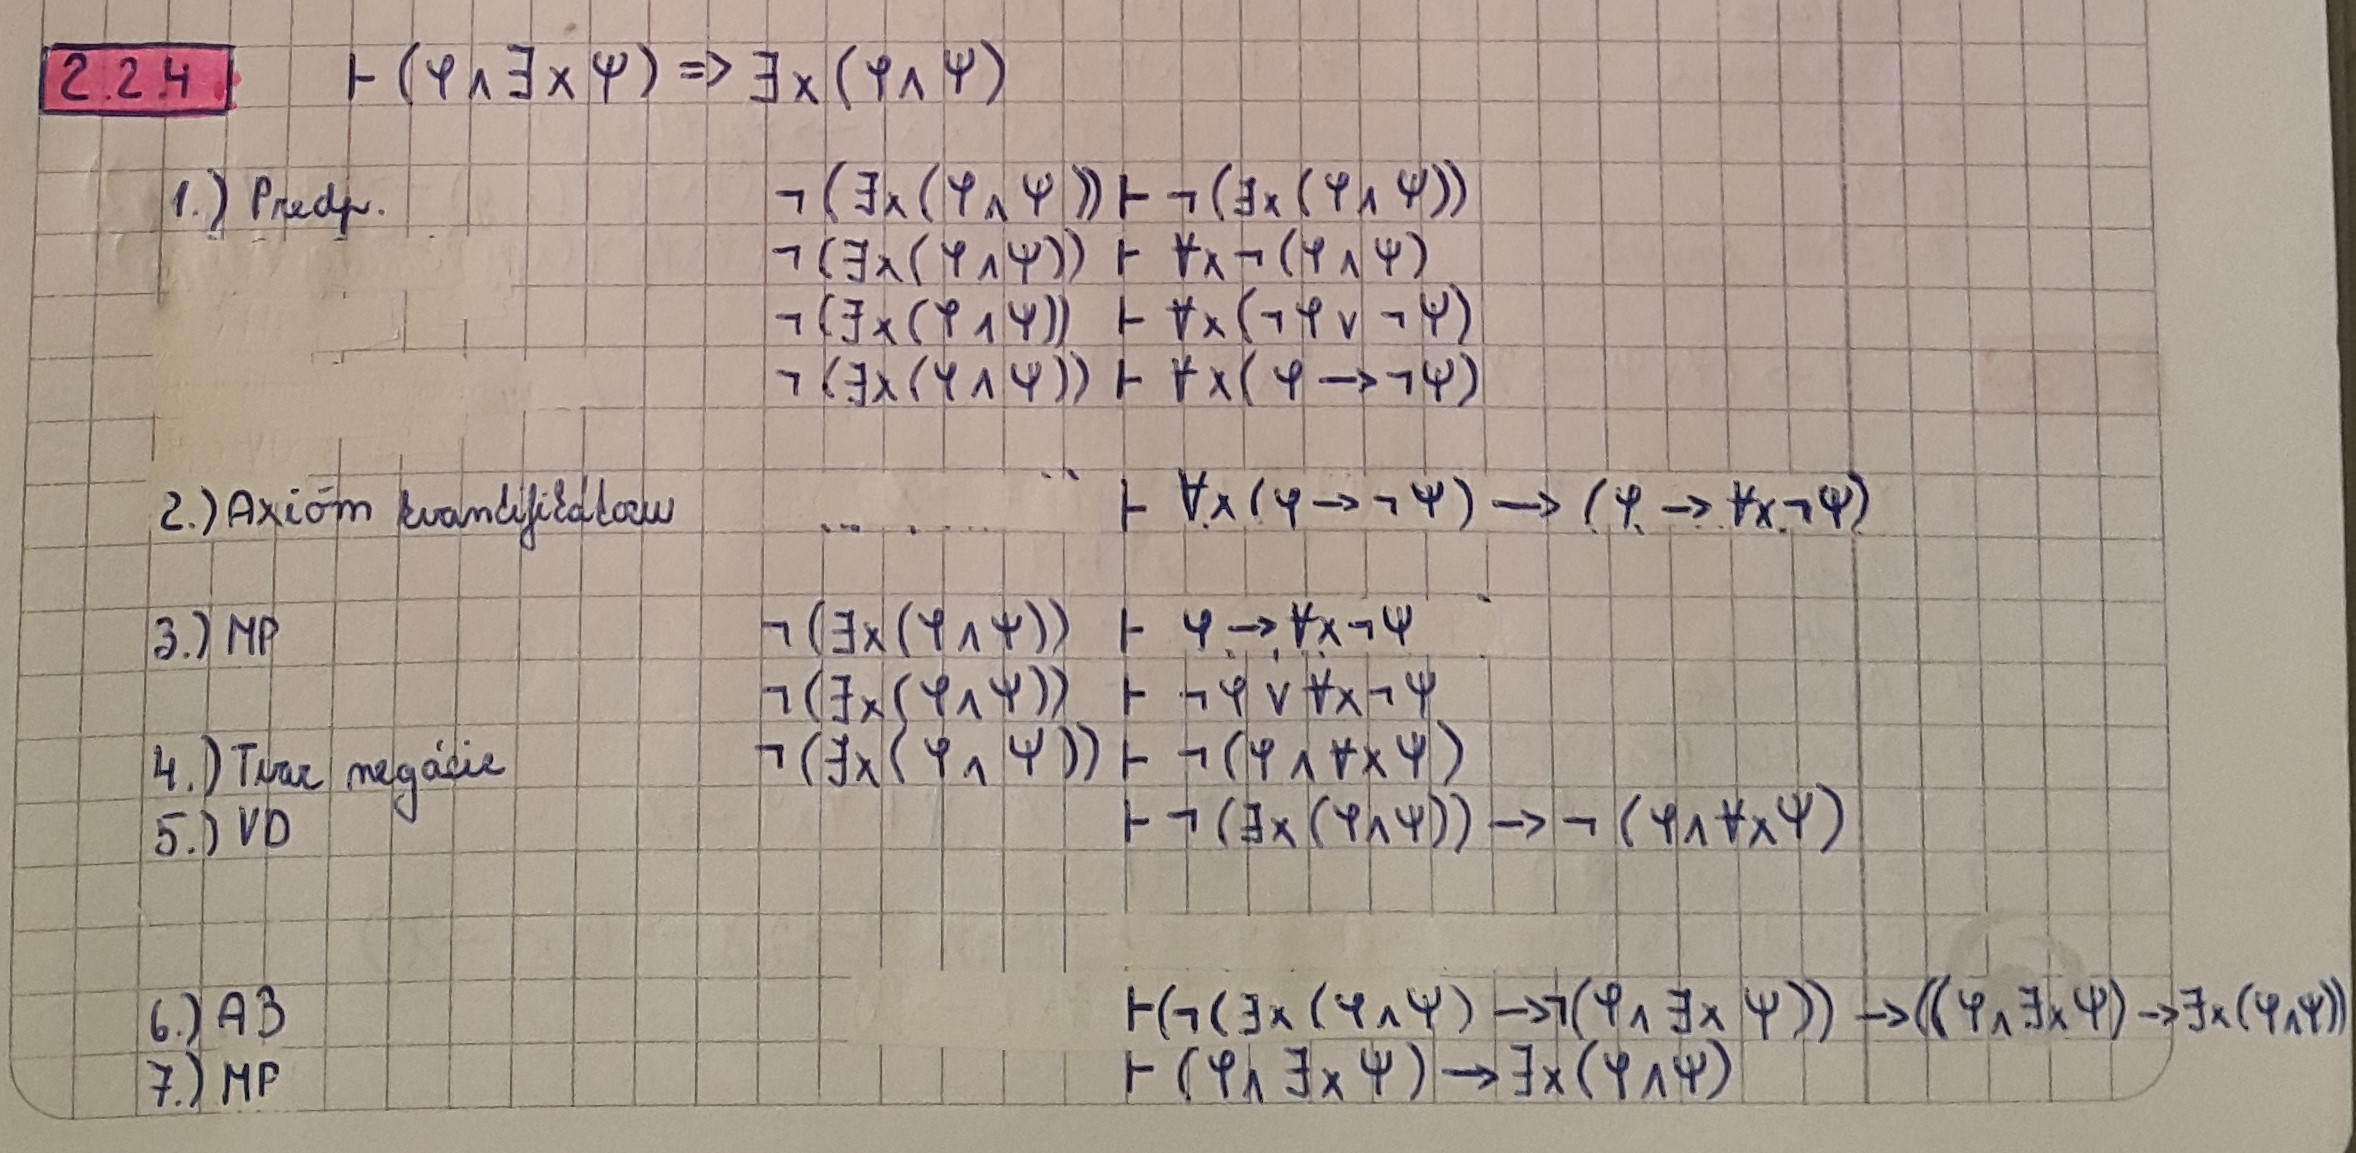 2.2.4 ⊢ (φ ∧ ∃x ψ) => ∃x (φ ∧ ψ)
1.) Predp. ¬(∃x(φ ∧ ψ)) ⊢ ¬(∃x(φ ∧ ψ))
¬(∃x(φ ∧ ψ)) ⊢ ∀x ¬(φ ∧ ψ)
¬(∃x(φ ∧ ψ)) ⊢ ∀x(¬φ ∨ ¬ψ)
¬(∃x(φ ∧ ψ)) ⊢ ∀x(φ → ¬ψ)
2.) Axióm kvantifikátorov ⊢ ∀x(φ → ¬ψ) → (φ → ∀x ¬ψ)
3.) MP ¬(∃x(φ ∧ ψ)) ⊢ φ → ∀x ¬ψ
¬(∃x(φ ∧ ψ)) ⊢ ¬φ ∨ ∀x ¬ψ
4.) Tvar negácie ¬(∃x(φ ∧ ψ)) ⊢ ¬(φ ∧ ∀x ψ)
5.) VD ⊢ ¬(∃x(φ ∧ ψ)) → ¬(φ ∧ ∀x ψ)
6.) A3 ⊢ (¬(∃x(φ ∧ ψ) → ¬(φ ∧ ∃x ψ)) → ((φ ∧ ∃x ψ) → ∃x(φ ∧ ψ))
7.) MP ⊢ (φ ∧ ∃x ψ) → ∃x(φ ∧ ψ)